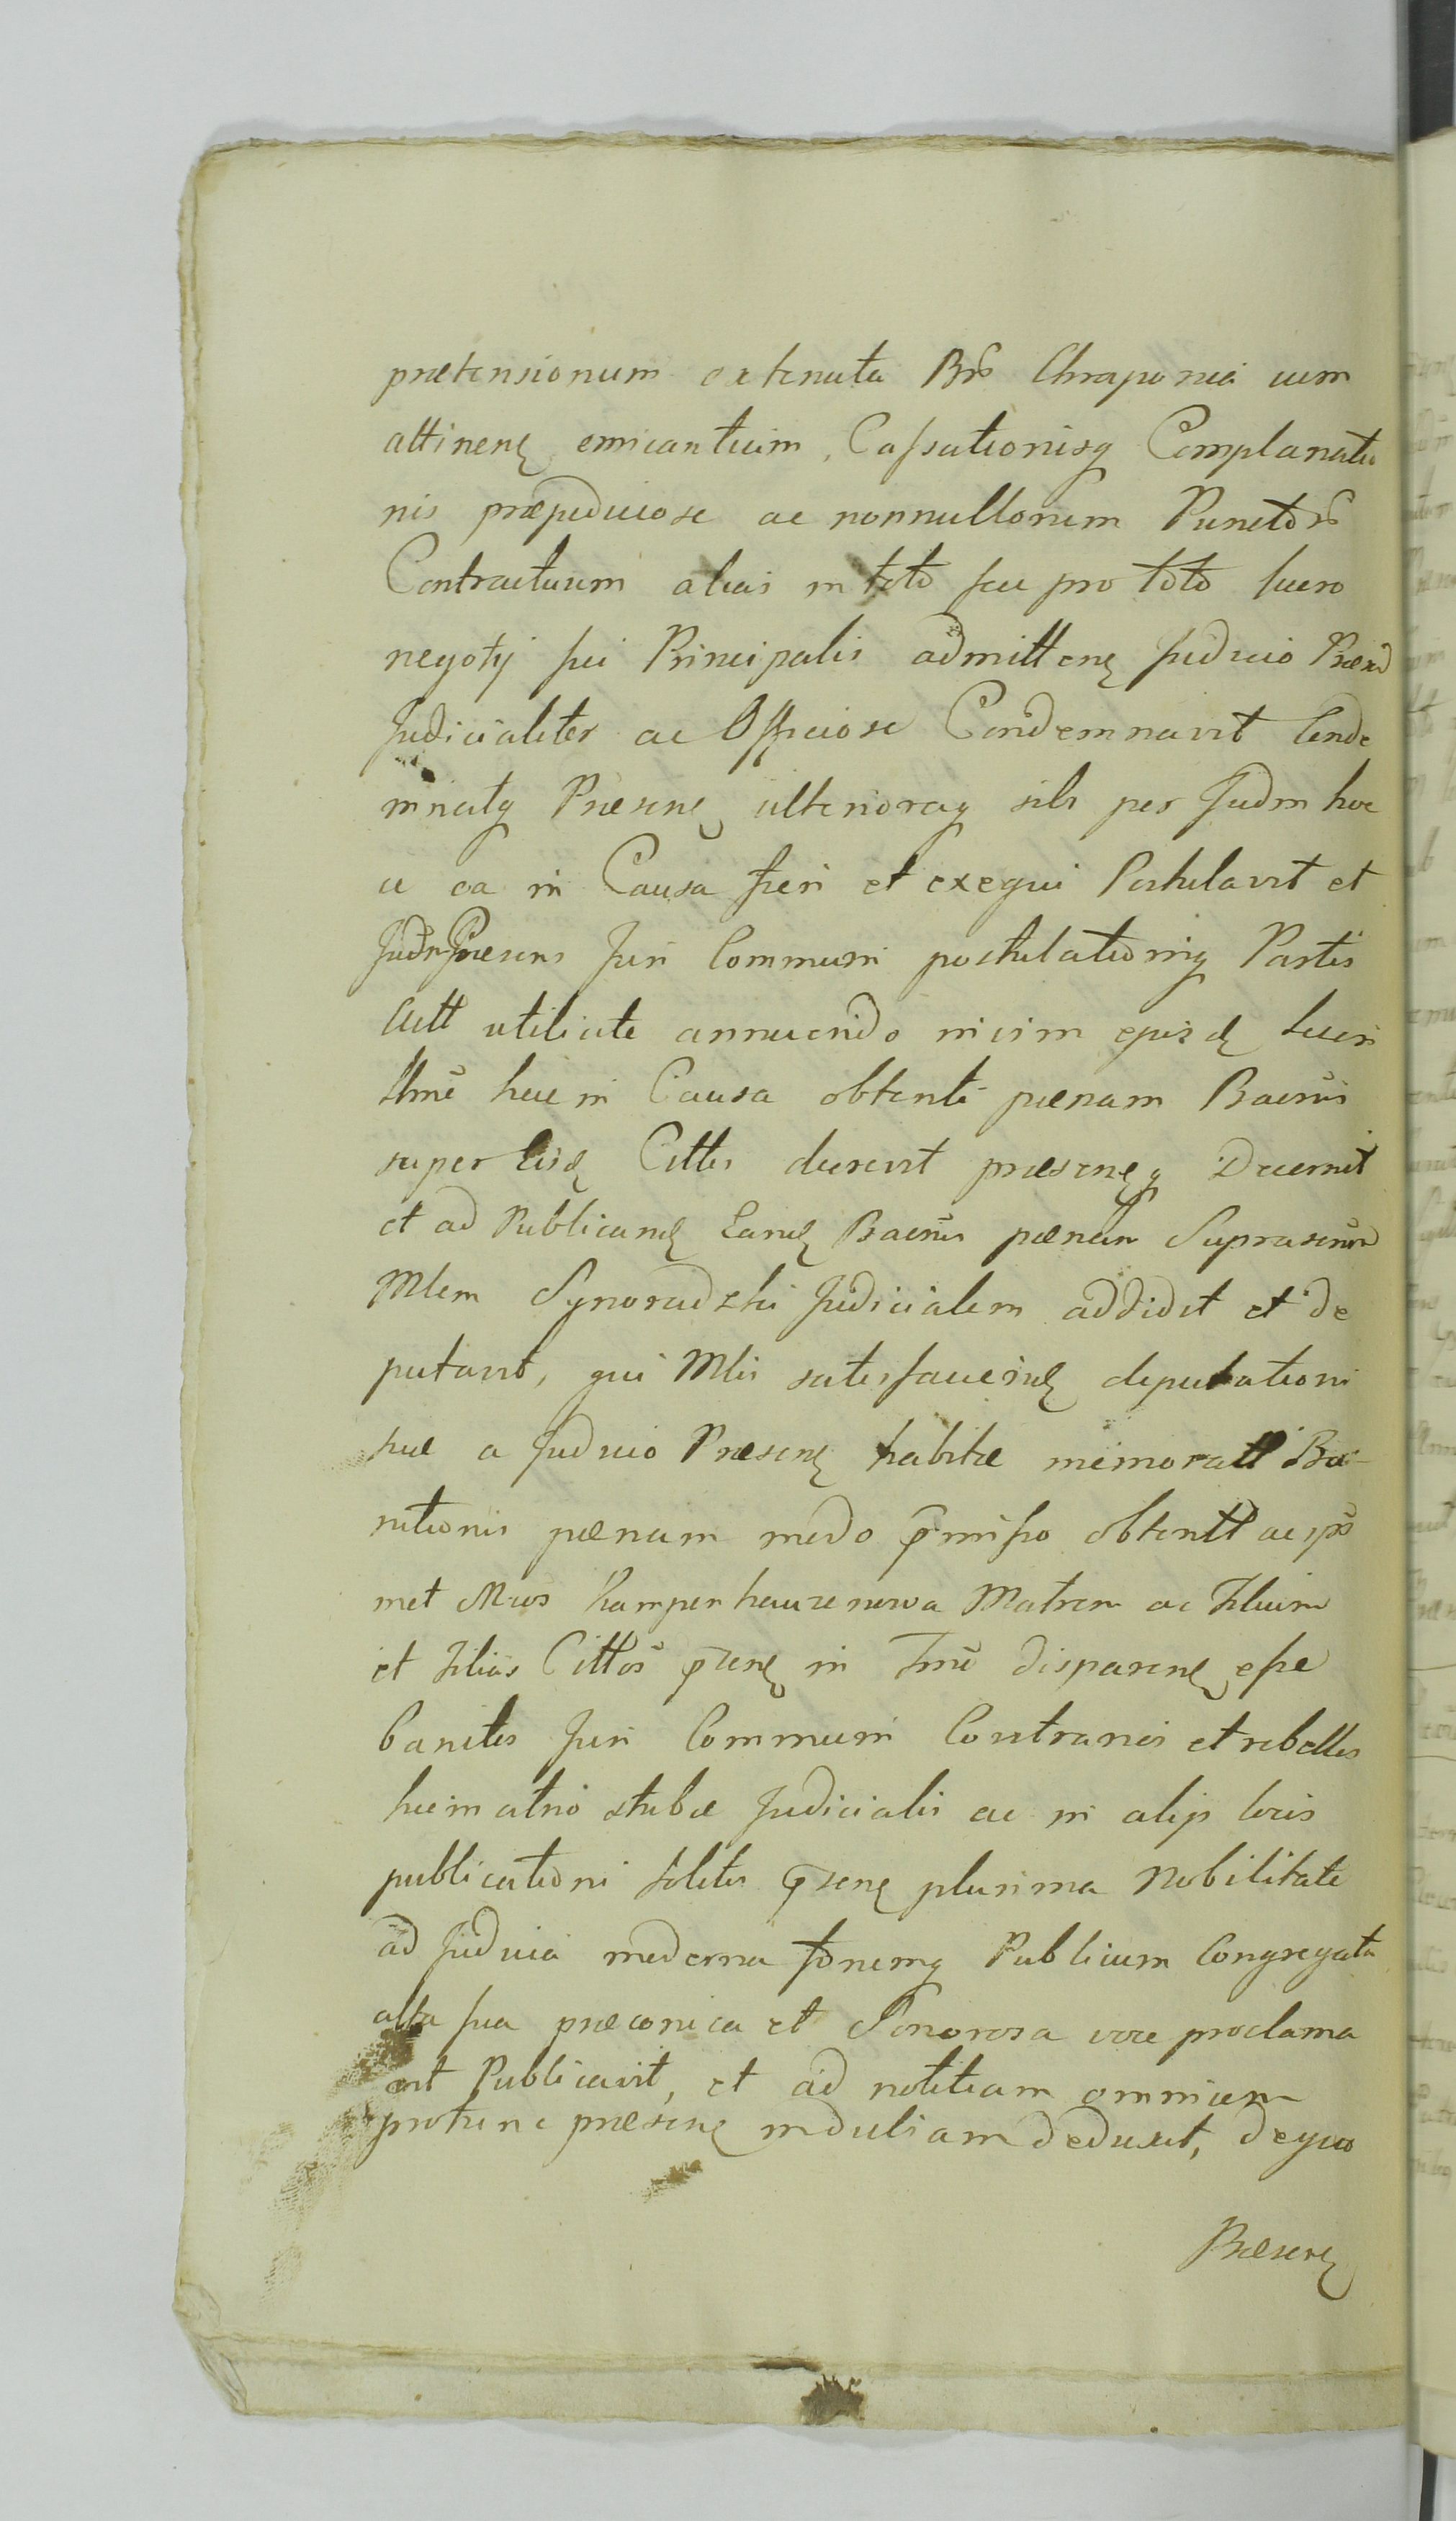 prætensionum ex tenuta Bnor̃ Chraponia cum
attinenꝫ emicantium, Cassationisq Complanatio
nis præjudiciose ac nonnullorum Punctor̃
Contractuum alias in toto seu pro toto lucro
negotij sui Principalis admittenꝫ Judicio Præsen
Judicialiter ac Officiose Condemnavit Conde
mnatq Præsenꝫ ulterioraq sibi per Judm hoc
ce ea in Causa fieri et exequi Postulavit et
Judm Præsens Juri Communi postulationiq Partis
Actt utiliate annuendo in vim ejusdꝫ lucri
Ttmẽ hac in Causa obtenti pænam Baenĩs
super Eisdꝫ Cittis decrevit præsenꝫq Decernit
et ad Publicandꝫ Eandꝫ Baenĩs pænam Suprascrim̃
Mlem Synoradzki Judicialem addidit et de
putavit, qui Mlis satisfaciendꝫ deputationi
suæ a Judicio Præsenꝫ habitæ memoratt Ba-
nitionis pænam modo p̃misso obtentt ac ips̃
met Mcos Kamperhauzenowa Matrem ac Filium
et Filias Cittos p̃senꝫ in Tm̃ẽ disparenꝫ esse
banitos Juri Communi Contrarios et rebelles
hic in atrio stubæ Judicialis ac in alijs locis
publicationi solitis p̃senꝫ plurima Nobilitate
ad Judicia moderna forumq Publicum Congregata
alta sua præconica et Sonorosa voce proclama
vit Publicavit, et ad notitiam omnium
protunc præsenꝫ induliam deduxit, de quo
Præsenꝫ